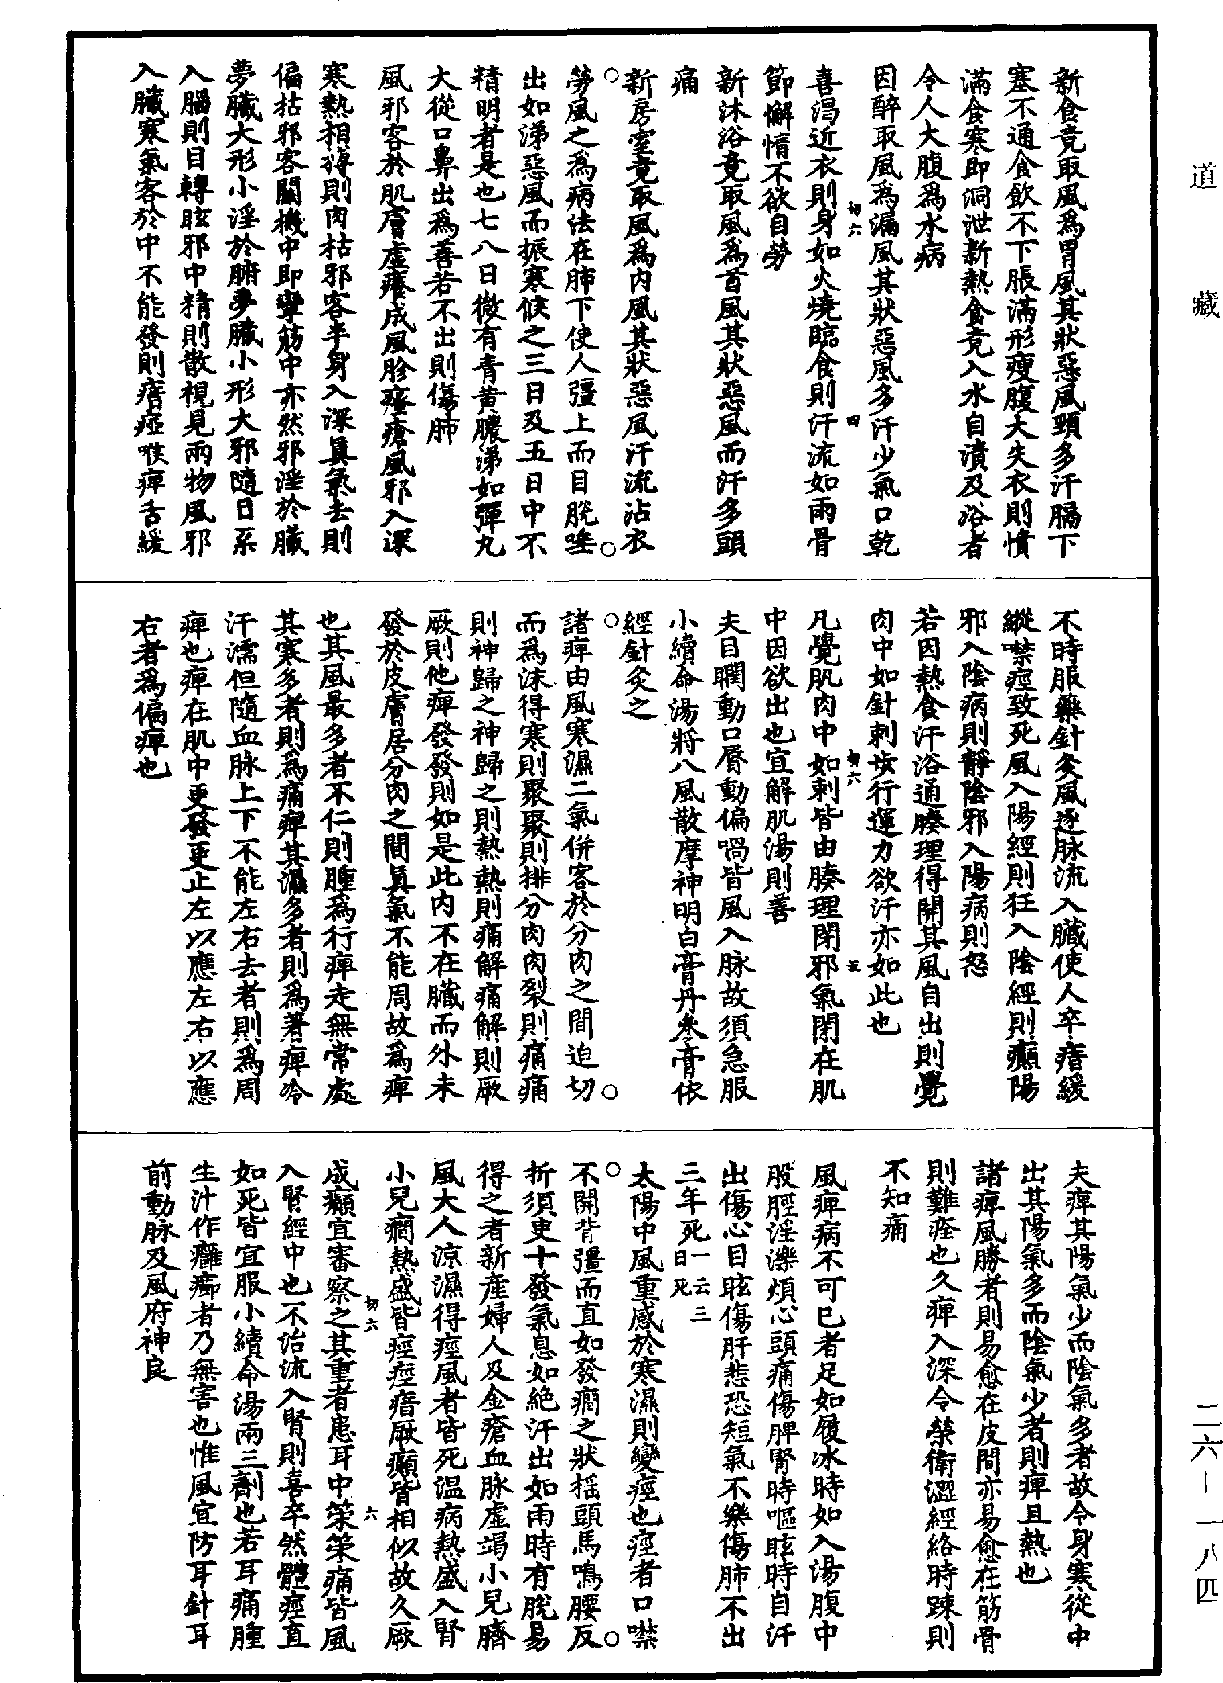 新食竟取風爲胃風其狀惡風頸多汗膈下
塞不通食飲不下脹滿形瘦腹大失衣則憤
滿食寒即洞泄新熱食竟入水自漬及浴者
令人大腹爲水病
因醉取風爲漏風其狀惡風多汗少氣口乾
喜渴近衣則身如火燒臨食則汗流如雨骨
節懈惰不欲自勞
新沐浴竟取風爲首風其狀惡風而汗多頭
痛
新房室竟取風爲內風其狀惡風汗流沾衣
勞風之爲病法在肺下使人彊上而目脫唾
出如涕惡風而振寒候之三日及五日中不
精明者是也七八日微有青黃膿涕如彈丸
大從口鼻出爲善若不出則傷肺
風邪客於肌膚虛癢成風胗瘙瘡風邪入深
寒熱相薄則肉枯邪客半身入深眞氣去則
偏枯邪客關機中即攣筋中亦然邪淫於臟
夢臟大形小淫於腑夢臟小形大邪隨目系
入腦則目轉眩邪中精則散視見兩物風邪
入臟寒氣客於中不能發則瘖瘂喉痺舌緩
不時服藥針灸風逐脉流入臟使人卒瘖緩
縱噤痙致死風入陽經則狂入陰經則癲陽
邪入陰病則靜陰邪入陽病則怒
若因熱食汗浴通腠理得開其風自出則覺
肉中如針刺步行運力欲汗亦如此也
凡覺肌肉中如刺皆由腠理閉邪氣閉在肌
中因欲出也宜解肌湯則善
夫目瞤動口脣動偏喎皆風入脉故須急服
小續命湯將八風散摩神明白膏丹參膏依
經針灸之
諸痺由風寒濕二氣併客於分肉之間迫切
而爲沫得寒則聚聚則排分肉肉裂則痛痛
則神歸之神歸之則熱熱則痛解痛解則厥
厥則他痺發發則如是此內不在臟而外未
發於皮膚居分肉之間眞氣不能周故爲痺
也其風最多者不仁則腫爲行痺走無常處
其寒多者則爲痛痺其濕多者則爲著痺冷
汗濡但隨血脉上下不能左右去者則爲周
痺也痺在肌中更發更止左以應左右以應
右者爲偏痺也
夫痺其陽氣少而陰氣多者故令身寒從中
出其陽氣多而陰氣少者則痺且熱也
諸痺風勝者則易愈在皮間亦易愈在筋骨
則難痊也久痺入深令榮衛澀經絡時踈則
不知痛
風痺病不可已者足如履冰時如入湯腹中
股脛淫濼煩心頭痛傷脾腎時嘔眩時自汗
出傷心目眩傷肝悲恐短氣不樂傷肺不出
三年死一云三日死
太陽中風重感於寒濕則變痙也痙者口噤
不開背彊而直如發癇之狀摇頭馬鳴腰反
折須臾十發氣息如絕汗出如雨時有脫易
得之者新產婦人及金瘡血脉虛竭小兒臍
風大人涼濕得痙風者皆死溫病熱盛入腎
小兒癇熱盛皆痙痙瘖厥癲皆相似故久厥
成癲宜審察之其重者患耳中策策痛皆風
入腎經中也不治流入腎則喜卒然體痙直
如死皆宜服小續命湯兩三劑也若耳痛腫
生汁作癰癤者乃無害也惟風宜防耳針耳
前動脉及風府神良
道藏
二六—一八四